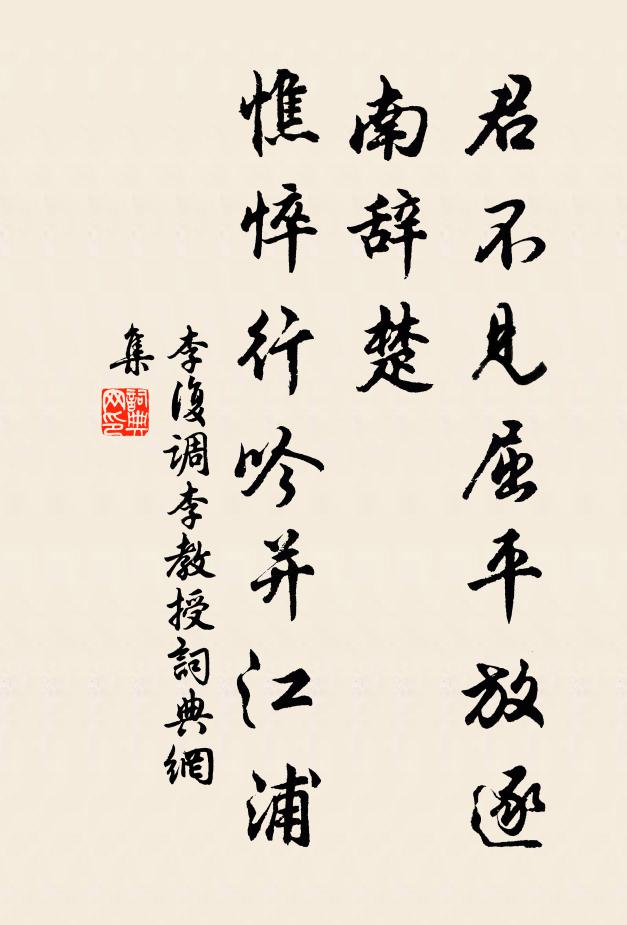 君不见屈平放逐
南辞楚
憔悴行吟并江浦
李復调李教授詞典網
集
詞典
网印